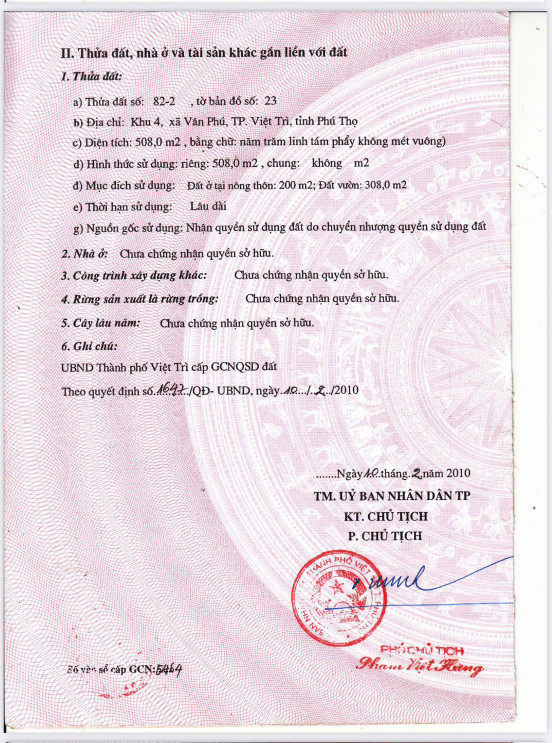 II. Thửa đất, nhà ở và tài sản khác gắn liền với đất
1. Thửa đất:
a) Thửa đất số: 82-2 , tờ bản đồ số: 23
b) Địa chỉ: Khu 4, xã Vân Phú, TP. Việt Trì, tỉnh Phú Thọ
c) Diện tích: 508,0 m2 , bằng chữ: năm trăm linh tám phẩy không mét vuông)
d) Hình thức sử dụng: riêng: 508,0 m2 , chung: không m2
đ) Mục đích sử dụng: Đất ở tại nông thôn: 200 m2; Đất vườn: 308,0 m2
e) Thời hạn sử dụng: Lâu dài
g) Nguồn gốc sử dụng: Nhận quyền sử dụng đất do chuyển nhượng quyền sử dụng đất
2. Nhà ở: Chưa chứng nhận quyền sở hữu.
3. Công trình xây dựng khác: Chưa chứng nhận quyền sở hữu.
4. Rừng sản xuất là rừng trồng: Chưa chứng nhận quyền sở hữu.
5. Cây lâu năm: Chưa chứng nhận quyền sở hữu.
6. Ghi chú:
UBND Thành phố Việt Trì cấp GCNQSD đất
Theo quyết định số.1647./QĐ- UBND, ngày.10.../..2../2010
.......Ngày.10.tháng..2.năm 2010
TM. UỶ BAN NHÂN DÂN TP
KT. CHỦ TỊCH
P. CHỦ TỊCH
THÀNH PHỐ VIỆT
PHÓ CHỦ TỊCH
Phạm Việt Hùng
Số vào sổ cấp GCN: 5464